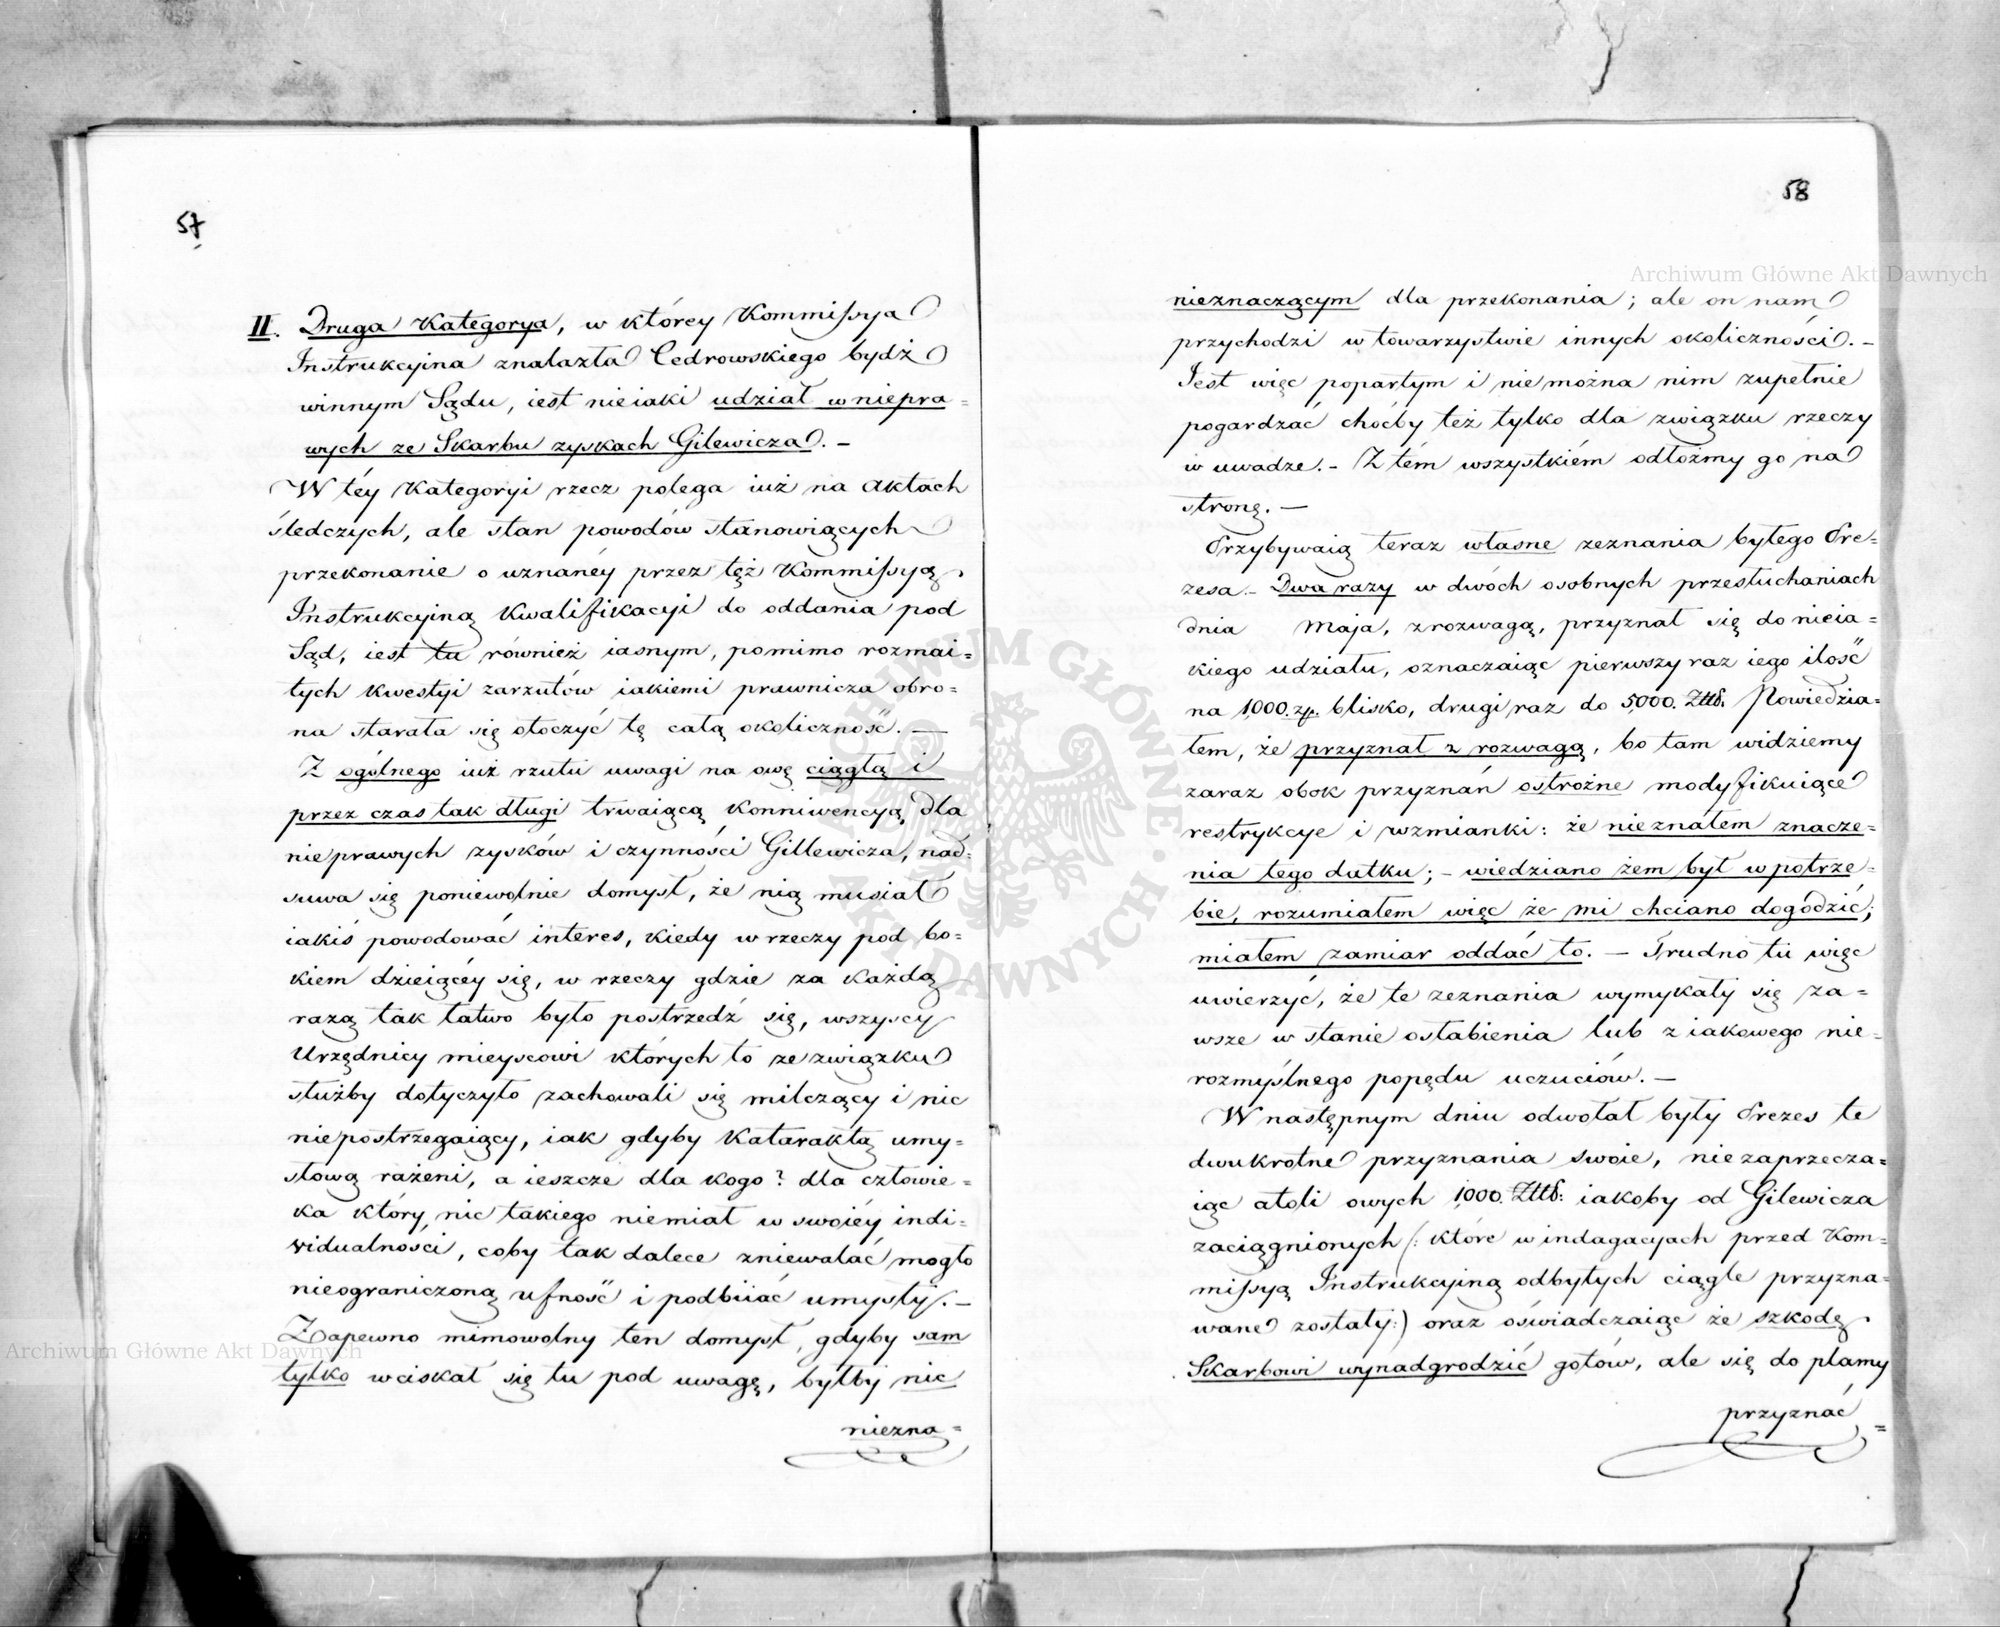 57
II. Druga Kategorya, w którey Kommissya
Instrukcyina znalazła Cedrowskiego bydź
winnym Sądu, iest nieiaki udział w niepra=
wych ze Skarbu zyskach Gilewicza. –
W téy Kategoryi rzecz polega iuż na aktach
śledczych, ale stan powodów stanowiących
przekonanie o uznanéy przez tęż Kommissyą
Instrukcyiną Kwalifikacyi do oddania pod
Sąd, iest tu również iasnym, pomimo rozmai=
tych kwestyi zarzutów iakiemi prawnicza obro=
na starała się otoczyć tę całą okoliczność. —
Z ogólnego iuż rzutu uwagi na owę ciągłą i
przez czas tak długi trwaiącą konniwencyą dla
nieprawych zysków i czynności Gillewicza, nad=
suwa się poniewolnie domysł, że nią musiał
iakiś powodować interes, kiedy w rzeczy pod bo=
kiem dzieiącéy się, w rzeczy gdzie za każdą
razą tak łatwo było postrzedź się, wszyscy
Urzędnicy mieyscowi których to ze związku
służby dotyczyło zachowali się milczący i nic
niepostrzegaiący, iak gdyby Kataraktą umy=
słową rażeni, a ieszcze dla kogo? dla człowie=
ka który nic takiego niemiał w swoiéy indi=
vidualności, coby tak dalece zniewalać mogło
nieograniczoną ufność i podbiiać umysły. –
Zapewno mimowolny ten domysł, gdyby sam
tylko wciskał się tu pod uwagę, byłby nic
niezna=
58
nieznaczącym dla przekonania; ale on nam
przychodzi w towarzystwie innych okoliczności. –
Iest więc popartym i nie można nim zupełnie
pogardzać choćby też tylko dla związku rzeczy
w uwadze. – Z tém wszystkiém odłóżmy go na
stronę. —
Przybywaią teraz własne zeznania byłego Pre=
zesa. – Dwa razy w dwóch osobnych przesłuchaniach
dnia Maja, z rozwagą, przyznał się do nieia=
kiego udziału, oznaczaiąc pierwszy raz iego ilość
na 1000. zp. blisko, drugi raz do 5000. Złtd. Powiedzia=
łem, że przyznał z rozwagą, bo tam widziemy
zaraz obok przyznań ostrożne modyfikuiące
restrykcye i wzmianki: że nieznałem znacze=
nia tego datku; – wiedziano żem był w potrze=
bie, rozumiałem więc że mi chciano dogodzić;
miałem zamiar oddać to. — Trudno tu więc
uwierzyć, że te zeznania wymykały się za=
wsze w stanie osłabienia lub z iakowego nie=
rozmyślnego popędu uczuciów. —
W następnym dniu odwołał były Prezes te
dwukrotne przyznania swoie, niezaprzecza=
iąc atoli owych 1000. Złtd: iakoby od Gilewicza
zaciągnionych (: które w indagacyach przed Kom=
missyą Instrukcyiną odbytych ciągle przyzna=
wane zostały:) oraz oświadczaiąc że szkodę
Skarbowi wynadgrodzić gotów, ale się do plamy
przyznać=
Archiwum Główne Akt Dawnych
Archiwum Główne Akt Dawnych
ARCHIWUM GŁÓWNE AKT DAWNYCH